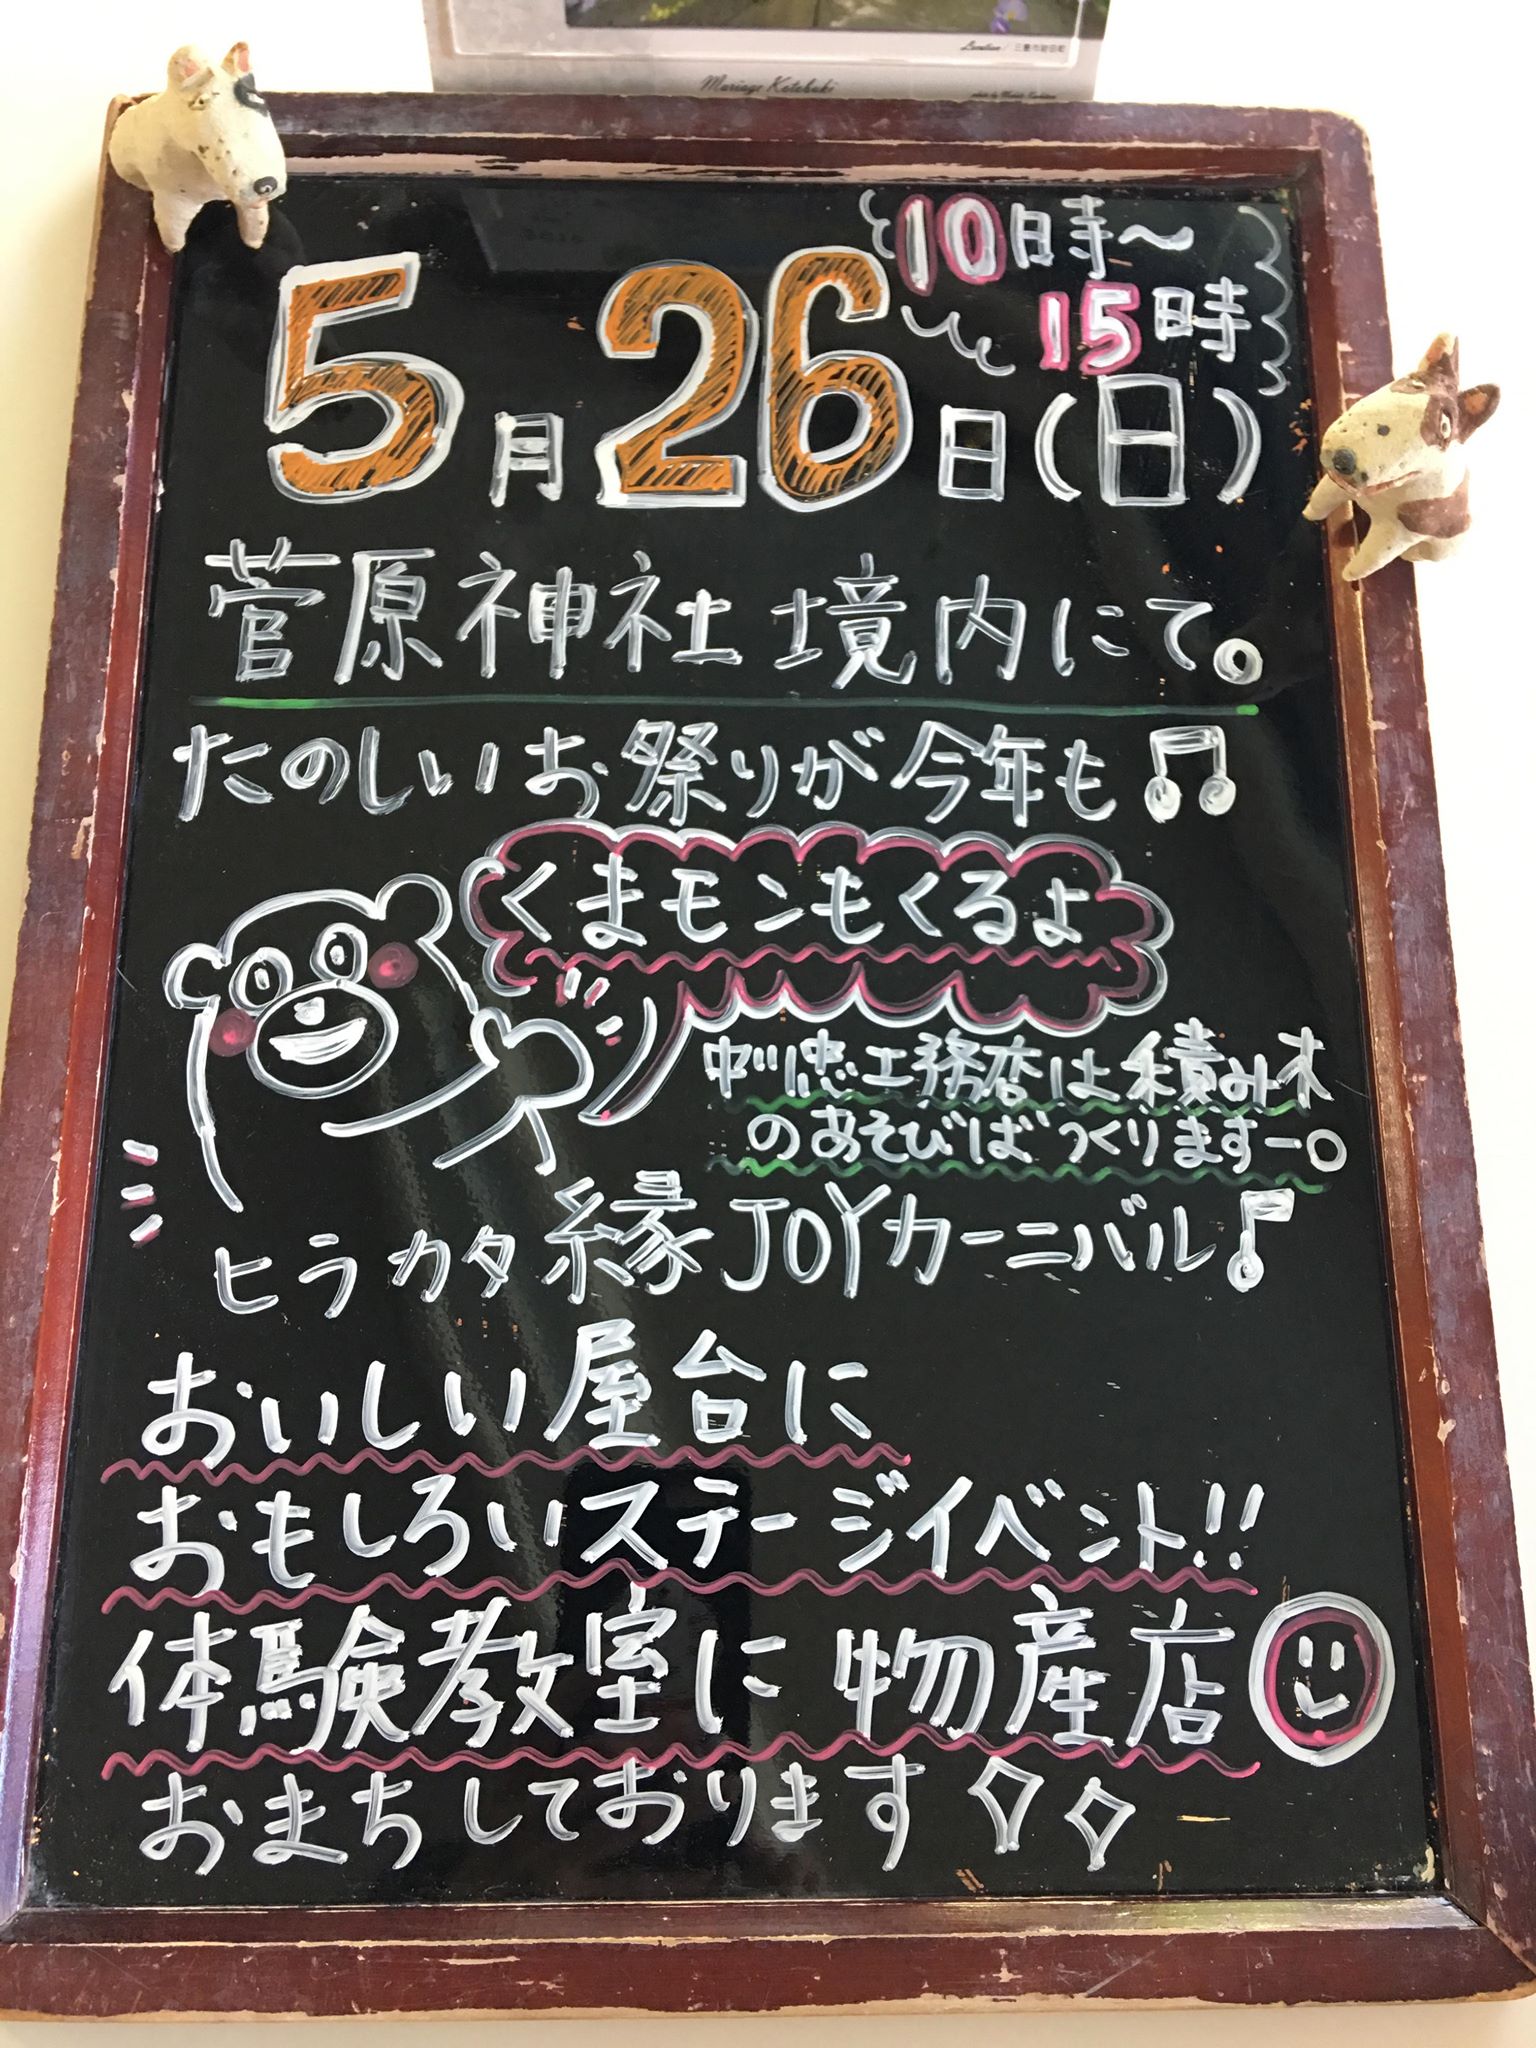 Mariage Kotobuki
10時〜
15時
5月26日(日)
菅原神社境内にて。
たのしいお祭りが今年も♫
くまモンもくるよ
中川忠工務店は積み木
のあそびばつくりますー。
ヒラカタ縁JOYカーニバル♪
おいしい屋台に
おもしろいステージイベント!!
体験教室に物産店
おまちしております